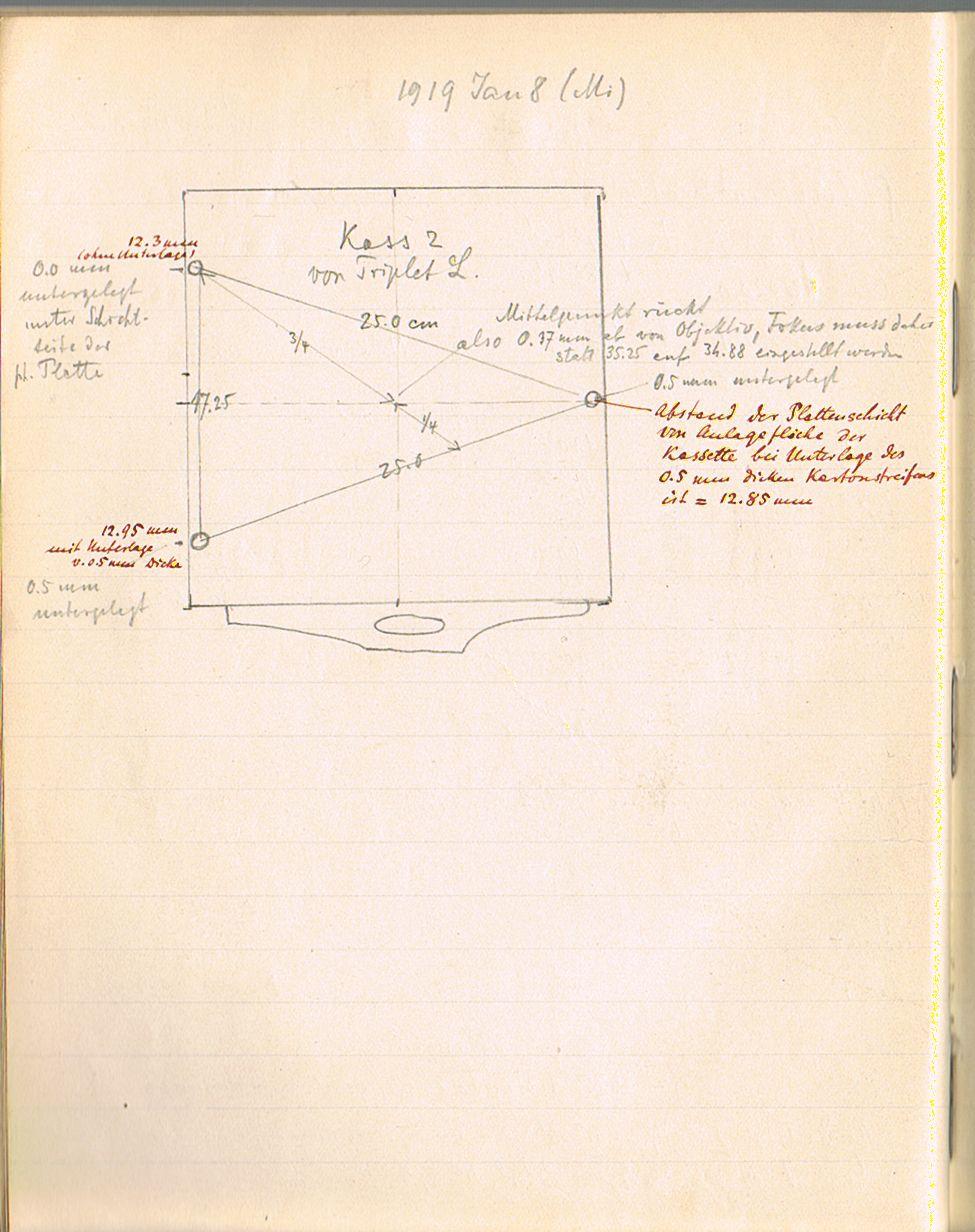 1919 Jan 8 (Mi)
Kass 2
von Triplet L.
12.3 mm
(ohne Unterlage)
0.0 mm
untergelegt
unter Schicht-
seite der
ph. Platte
25.0 cm
3/4
Mittelpunkt rückt
also 0.37 mm ab von Objektiv, Fokus muss daher
statt 35.25 auf 34.88 eingestellt werden
0.5 mm untergelegt
17.25
1/4
25.0
Abstand der Plattenschicht
von Anlagefläche der
Kassette bei Unterlage des
0.5 mm dicken Kartonstreifens
ist = 12.85 mm
12.95 mm
mit Unterlage
v. 05 mm Dicke
0.5 mm
untergelegt